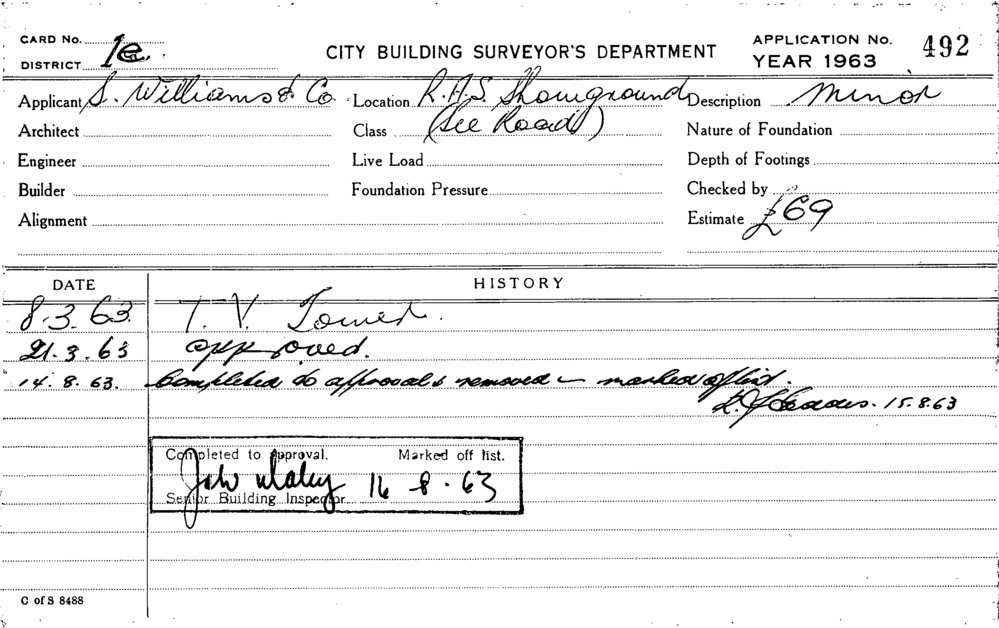 CARD No.
DISTRICT 1e
CITY BUILDING SURVEYOR'S DEPARTMENT
APPLICATION No. 492
YEAR 1963
Applicant S. Williams & Co. Location R.A.S. Showground Description Minor
Architect Class (See Road) Nature of Foundation
Engineer Live Load Depth of Footings
Builder Foundation Pressure Checked by
Alignment Estimate £69
DATE HISTORY
8.3.63. T.V. Tower.
21.3.63 approved.
14.8.63. Completed to approval & removed - marked off list.
15.8.63
Completed to approval. Marked off list.
John 16-8-63
Senior Building Inspector
C of S 8488